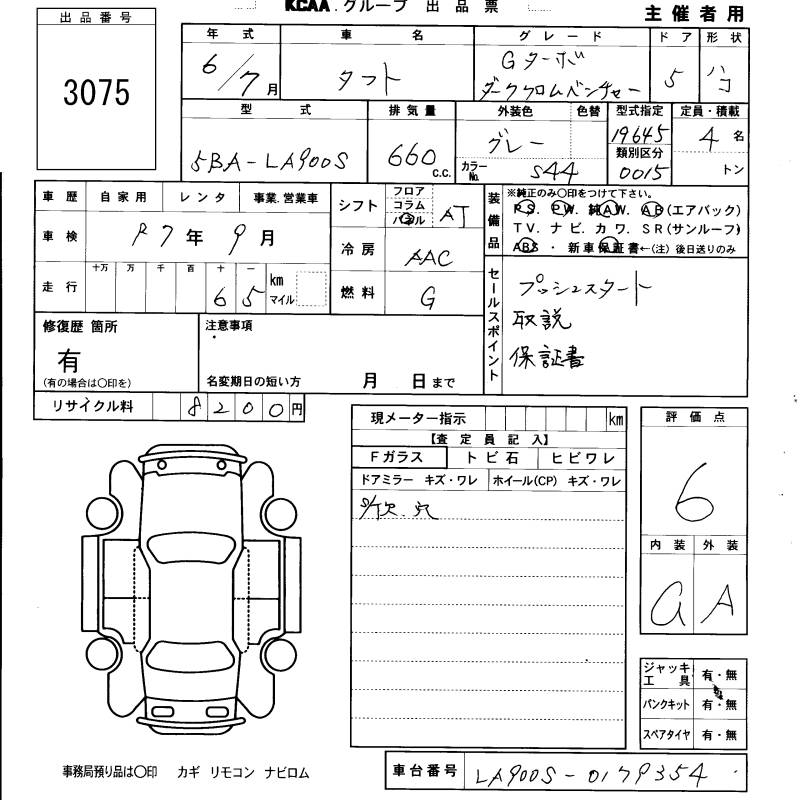 KCAA.グループ 出品票
主催者用
出品番号
3075
年式 車名 グレード ドア 形状
6/7月 タフト Gターボ ダーククロムベンチャー 5 ハコ
型式 排気量 外装色 色替 型式指定 定員・積載
5BA-LA900S 660 C.C. グレー カラーNo. S44 19645 4名
類別区分
0015 トン
車歴 自家用 レンタ 事業.営業車
シフト フロア コラム パネル AT
装備品 ※純正のみ〇印をつけて下さい。
PS. PW. 純AW. AB(エアバック)
TV. ナビ. カワ. SR(サンルーフ)
ABS ・ 新車保証書←(注)後日送りのみ
車検 R7年9月
冷房 AAC
走行 十万 万 千 百 十 一 km マイル
6 5
燃料 G
セールスポイント
プッシュスタート
取説
保証書
修復歴 箇所
有
(有の場合は〇印を)
注意事項
名変期日の短い方 月 日まで
リサイクル料 8200円
現メーター指示 km
【査定員記入】
Fガラス トビ石 ヒビワレ
ドアミラー キズ・ワレ ホイール(CP) キズ・ワレ
評価点
6
内装 外装
A
ジャッキ工具 有・無
パンクキット 有・無
スペアタイヤ 有・無
事務局預り品は〇印 カギ リモコン ナビロム
車台番号 LA900S-0179354